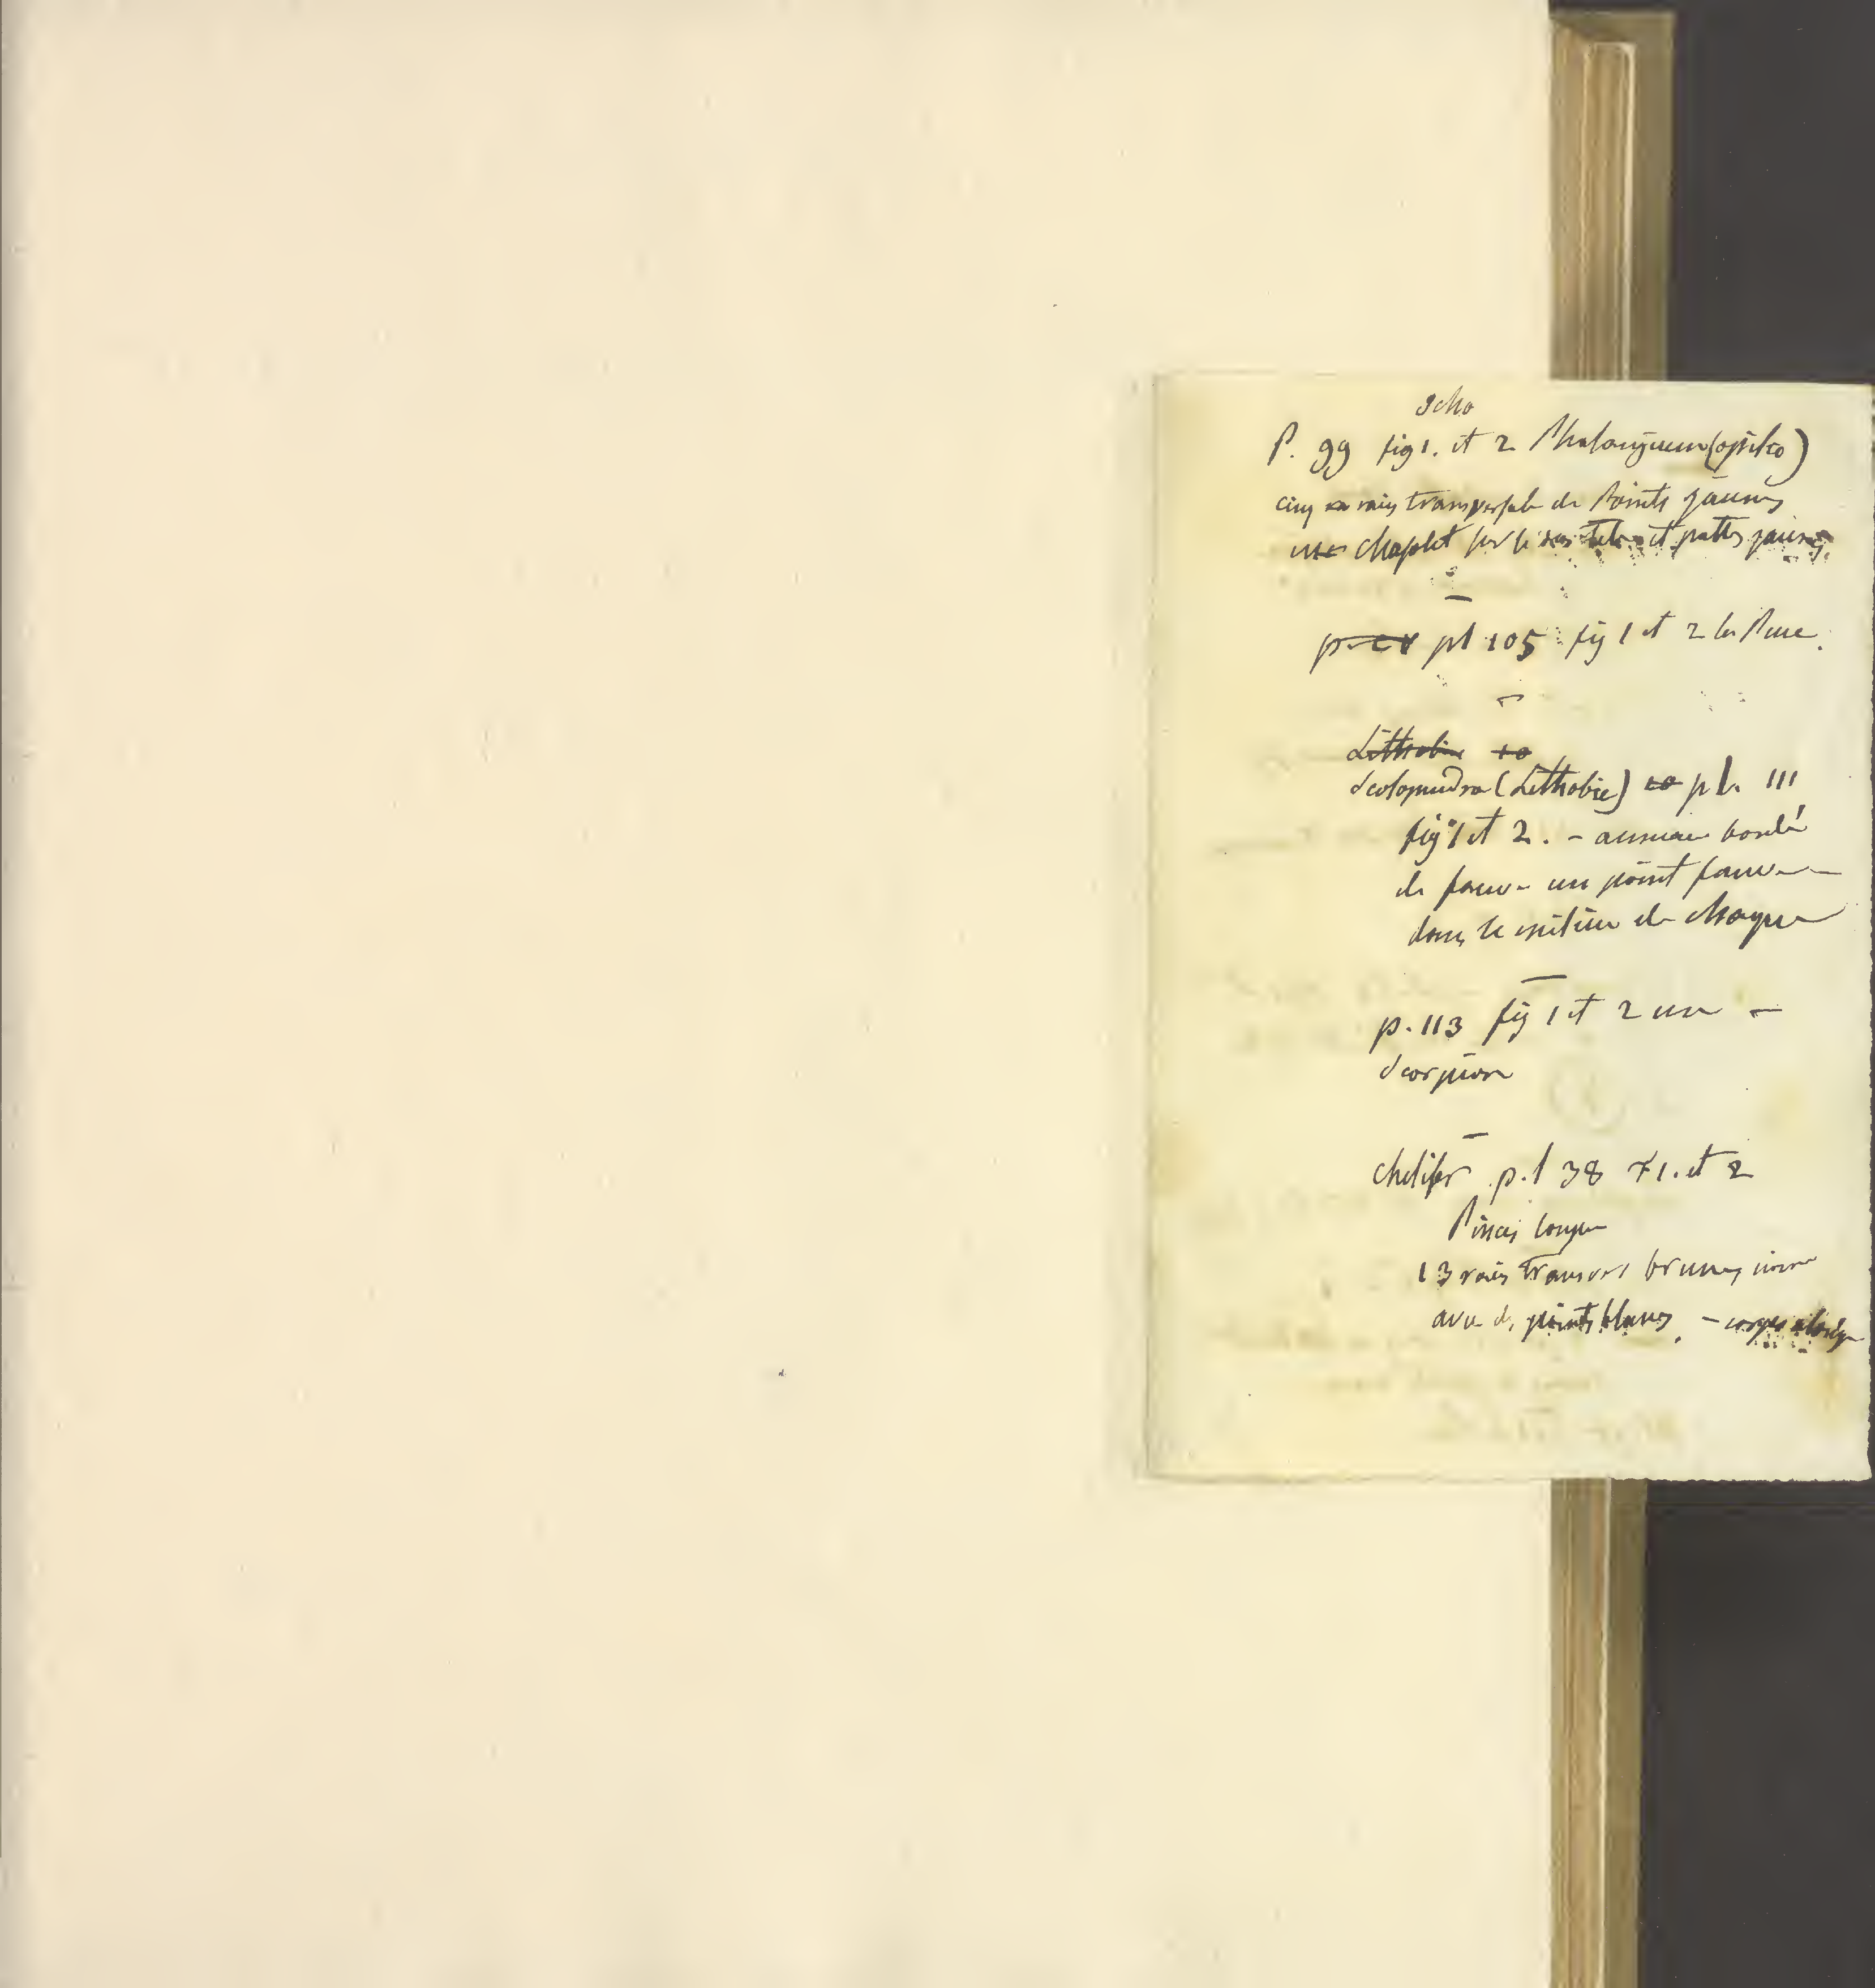 P. 99 fig 1. et 2 Phalangium (opilio)
cinq raies transversale de points jaunes
chaplet sur le dos et pattes jaunes
pl 105 fig 1 et 2 la Puce.
Lithobie 10
Scolopendra (Lithobie) pl. 111
fig 1 et 2. - anneau bordé
de fauve un point fauve
dans le milieu de chaque
p. 113 fig 1 et 2 un -
Scorpion
chelifer p.l 38 f 1. et 2
Pinces longue
13 raies transvers brunes
avec des points blancs - corps